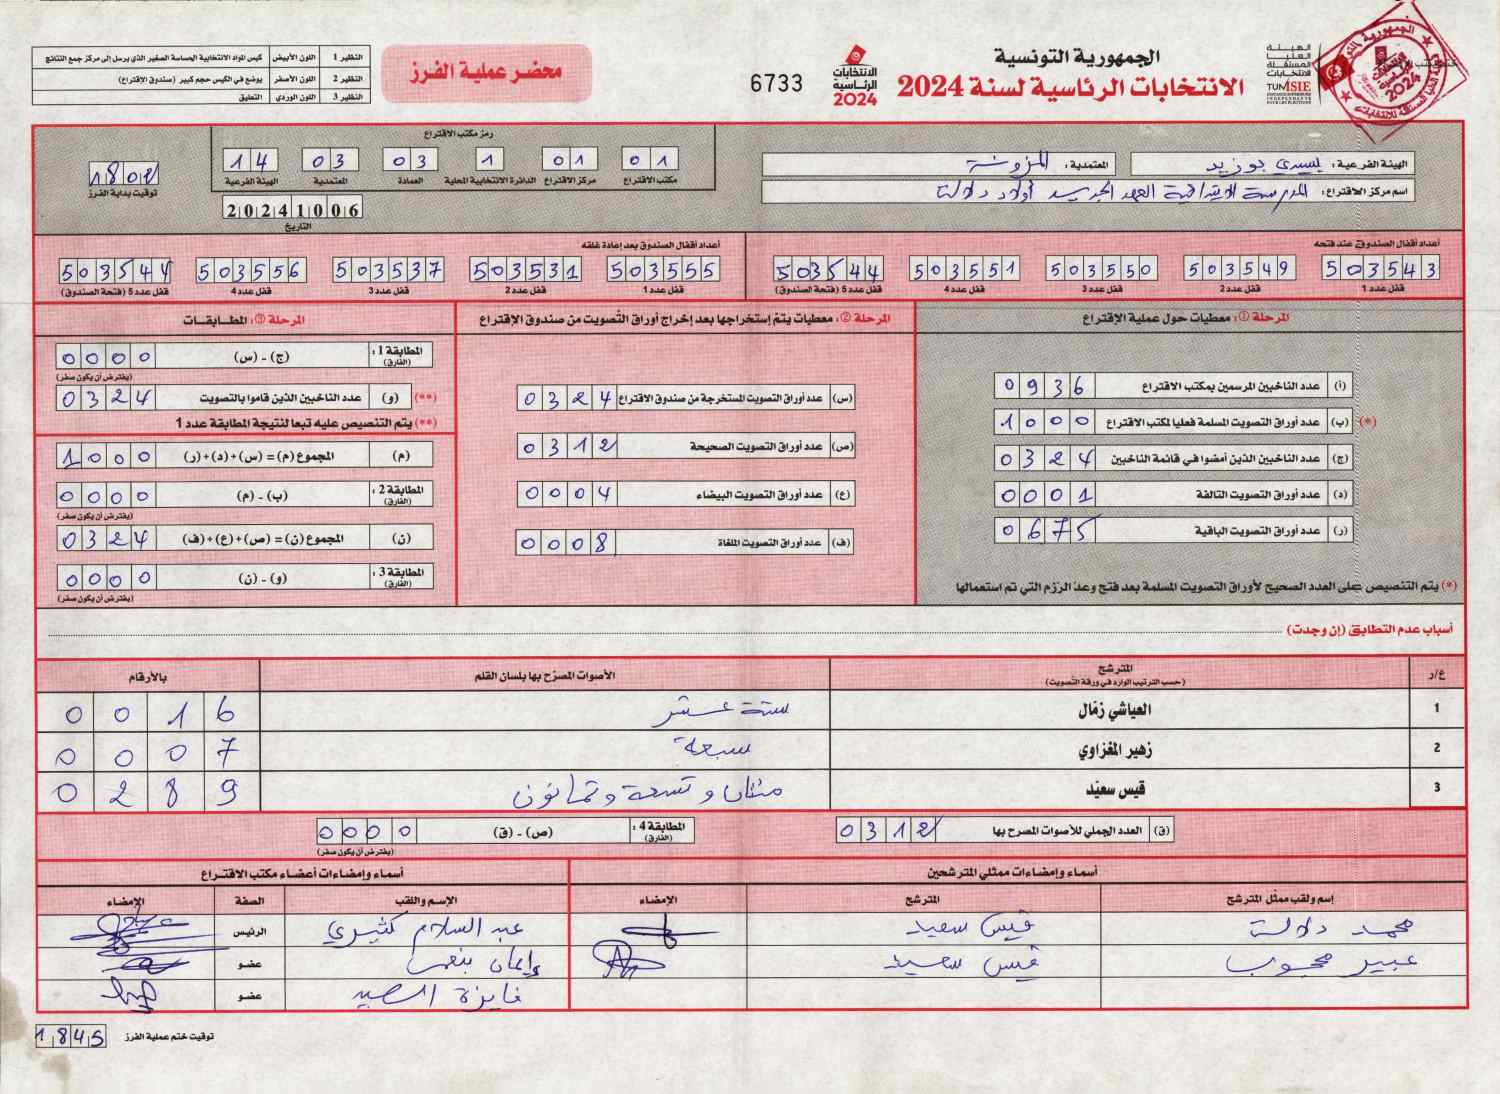 الجمهورية التونسية
الانتخابات الرئاسية لسنة 2024
الهيئة العليا المستقلة للانتخابات
TUNISIE
الانتخابات الرئاسية 2024
6733
محضر عملية الفرز
النظير 1 اللون الأبيض كيس المواد الانتخابية الحساسة الصغير الذي يرسل إلى مركز جمع النتائج
النظير 2 اللون الأصفر يوضع في الكيس حجم كبير (صندوق الاقتراع)
النظير 3 اللون الوردي التعليق
الهيئة الفرعية: سيدي بوزيد المعتمدية: المزونة
اسم مركز الاقتراع: المدرسة الابتدائية العهد الجديد أولاد دلالت
رمز مكتب الاقتراع
01 01 1 03 03 14
مكتب الاقتراع مركز الاقتراع الدائرة الانتخابية المحلية العمادة المعتمدية الهيئة الفرعية
20241006
التاريخ
1802
توقيت بداية الفرز
أعداد أقفال الصندوق عند فتحه
503543 503549 503550 503551 503544
قفل عدد 1 قفل عدد 2 قفل عدد 3 قفل عدد 4 قفل عدد 5 (فتحة الصندوق)
أعداد أقفال الصندوق بعد إعادة غلقه
503555 503531 503537 503556 503544
قفل عدد 1 قفل عدد 2 قفل عدد 3 قفل عدد 4 قفل عدد 5 (فتحة الصندوق)
المرحلة ①: معطيات حول عملية الإقتراع
(أ) عدد الناخبين المرسمين بمكتب الاقتراع 0936
(*) (ب) عدد أوراق التصويت المسلمة فعليا لمكتب الاقتراع 1000
(ج) عدد الناخبين الذين أمضوا في قائمة الناخبين 0324
(د) عدد أوراق التصويت التالفة 0001
(ر) عدد أوراق التصويت الباقية 0675
(*) يتم التنصيص على العدد الصحيح لأوراق التصويت المسلمة بعد فتح وعدّ الرّزم التي تم استعمالها
المرحلة ②: معطيات يتمّ إستخراجها بعد إخراج أوراق التّصويت من صندوق الإقتراع
(س) عدد أوراق التصويت المستخرجة من صندوق الاقتراع 0324
(ص) عدد أوراق التصويت الصحيحة 0312
(ع) عدد أوراق التصويت البيضاء 0004
(ف) عدد أوراق التصويت الملغاة 0008
المرحلة ③: المطابقات
المطابقة 1: (الفارق) (ج) - (س) 0000
(يفترض أن يكون صفر)
(**) (و) عدد الناخبين الذين قاموا بالتصويت 0324
(**) يتم التنصيص عليه تبعا لنتيجة المطابقة عدد 1
(م) المجموع (م) = (س)+(د)+(ر) 1000
المطابقة 2: (الفارق) (ب) - (م) 0000
(يفترض أن يكون صفر)
(ن) المجموع (ن) = (ص)+(ع)+(ف) 0324
المطابقة 3: (الفارق) (و) - (ن) 0000
(يفترض أن يكون صفر)
أسباب عدم التطابق (إن وجدت)
ع/ر المترشح (حسب الترتيب الوارد في ورقة التصويت) الأصوات المصرّح بها بلسان القلم بالأرقام
1 العياشي زمّال ستة عشر 0016
2 زهير المغزاوي سبعة 0007
3 قيس سعيّد مئتان و تسعة و ثمانون 0289
(ق) العدد الجملي للأصوات المصرح بها 0312 المطابقة 4: (الفارق) (ص) - (ق) 0000
(يفترض أن يكون صفر)
أسماء وإمضاءات ممثلي المترشحين
إسم ولقب ممثّل المترشح المترشح الإمضاء
محمد دلالت قيس سعيد
عبير محجوب قيس سعيد
أسماء وإمضاءات أعضاء مكتب الاقتراع
الإسم واللقب الصفة الإمضاء
عبد السلام كثيري الرئيس
إيمان عضو
فايزة عضو
توقيت ختم عملية الفرز 1845